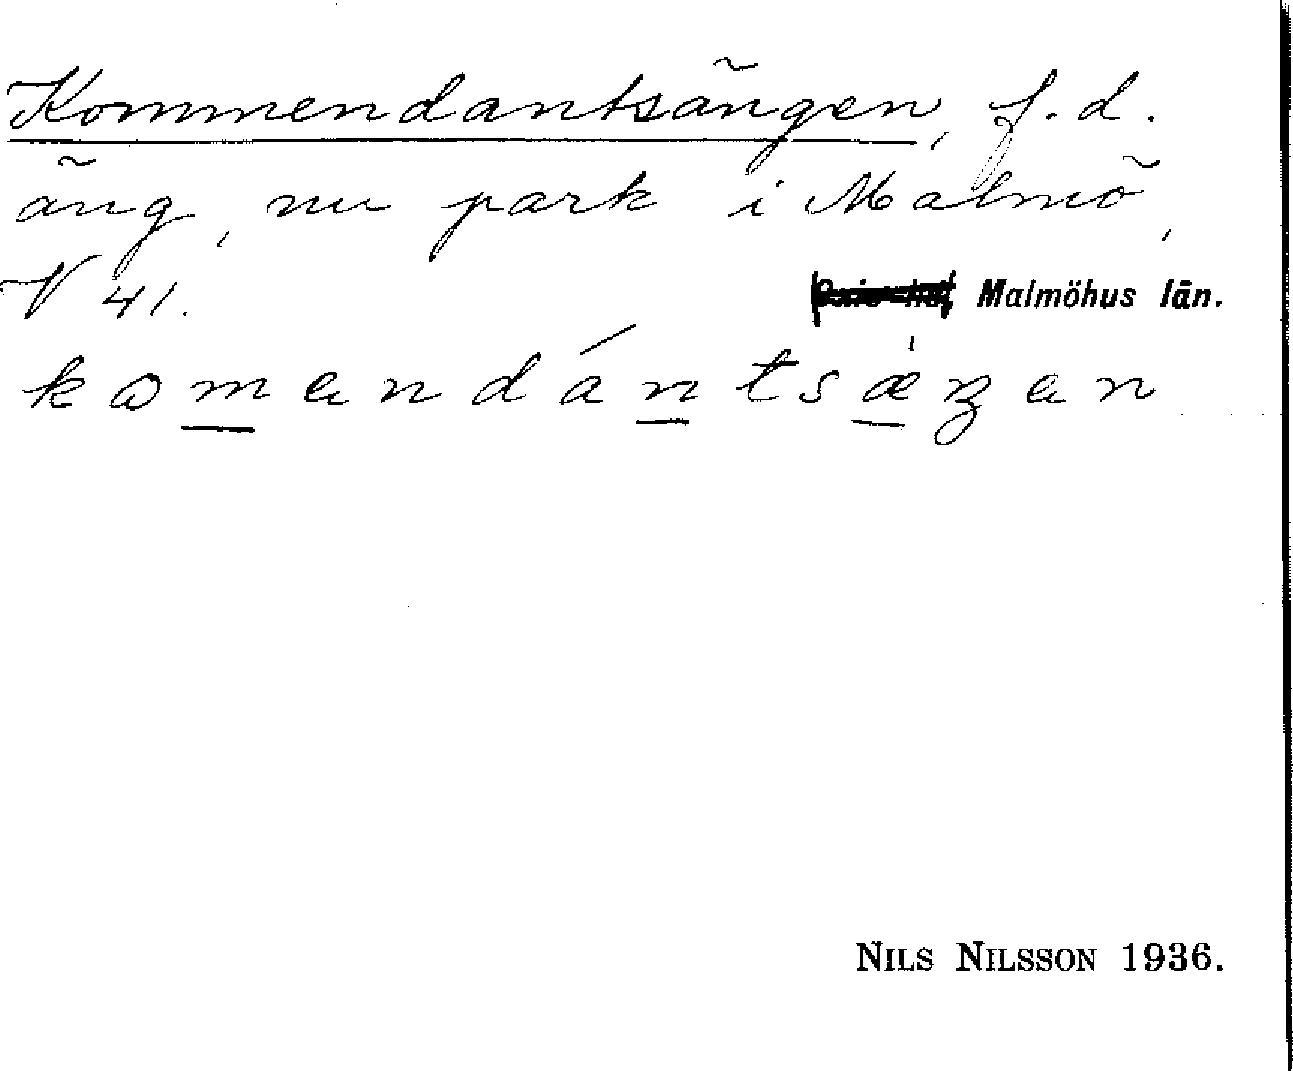 Kommendantsängen, f.d.
äng, nu park i Malmö,
V 41. Malmöhus län.
komendántsæŋen
NILS NILSSON 1936.